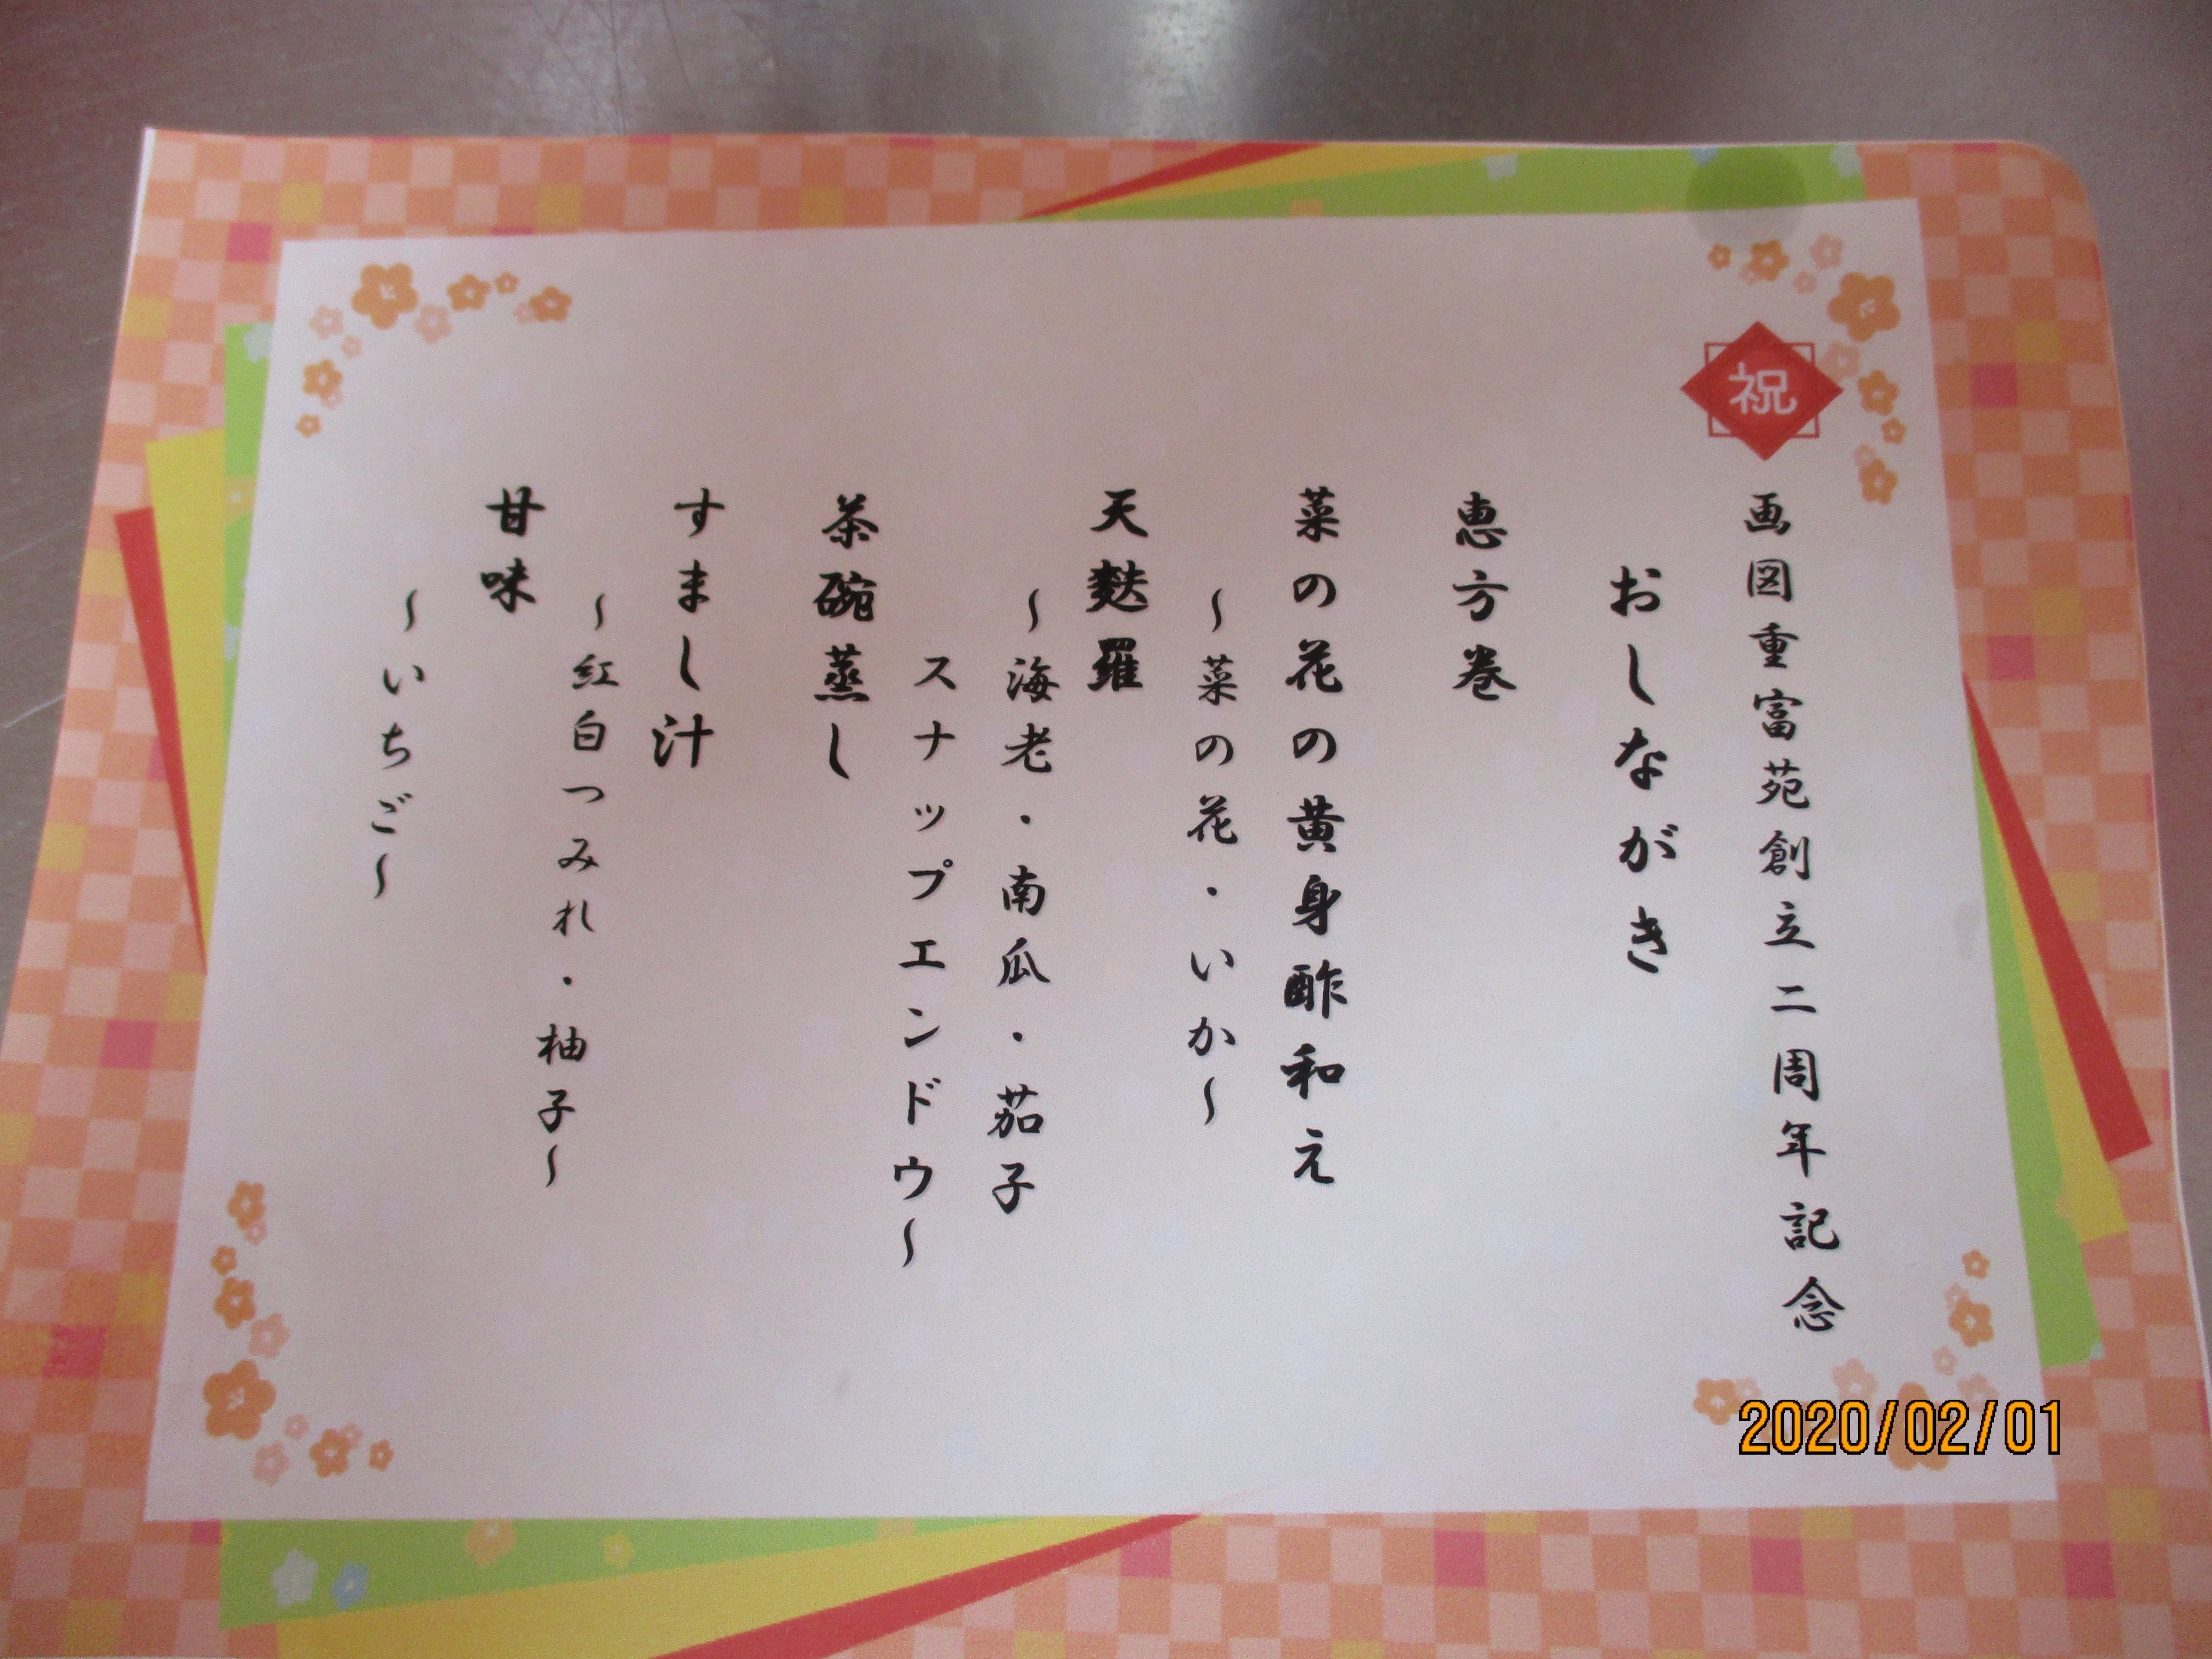 祝
画図重富苑創立二周年記念
おしながき
恵方巻
菜の花の黄身酢和え
～菜の花・いか～
天麩羅
～海老・南瓜・茄子
スナップエンドウ～
茶碗蒸し
すまし汁
～紅白つみれ・柚子～
甘味
～いちご～
2020/02/01